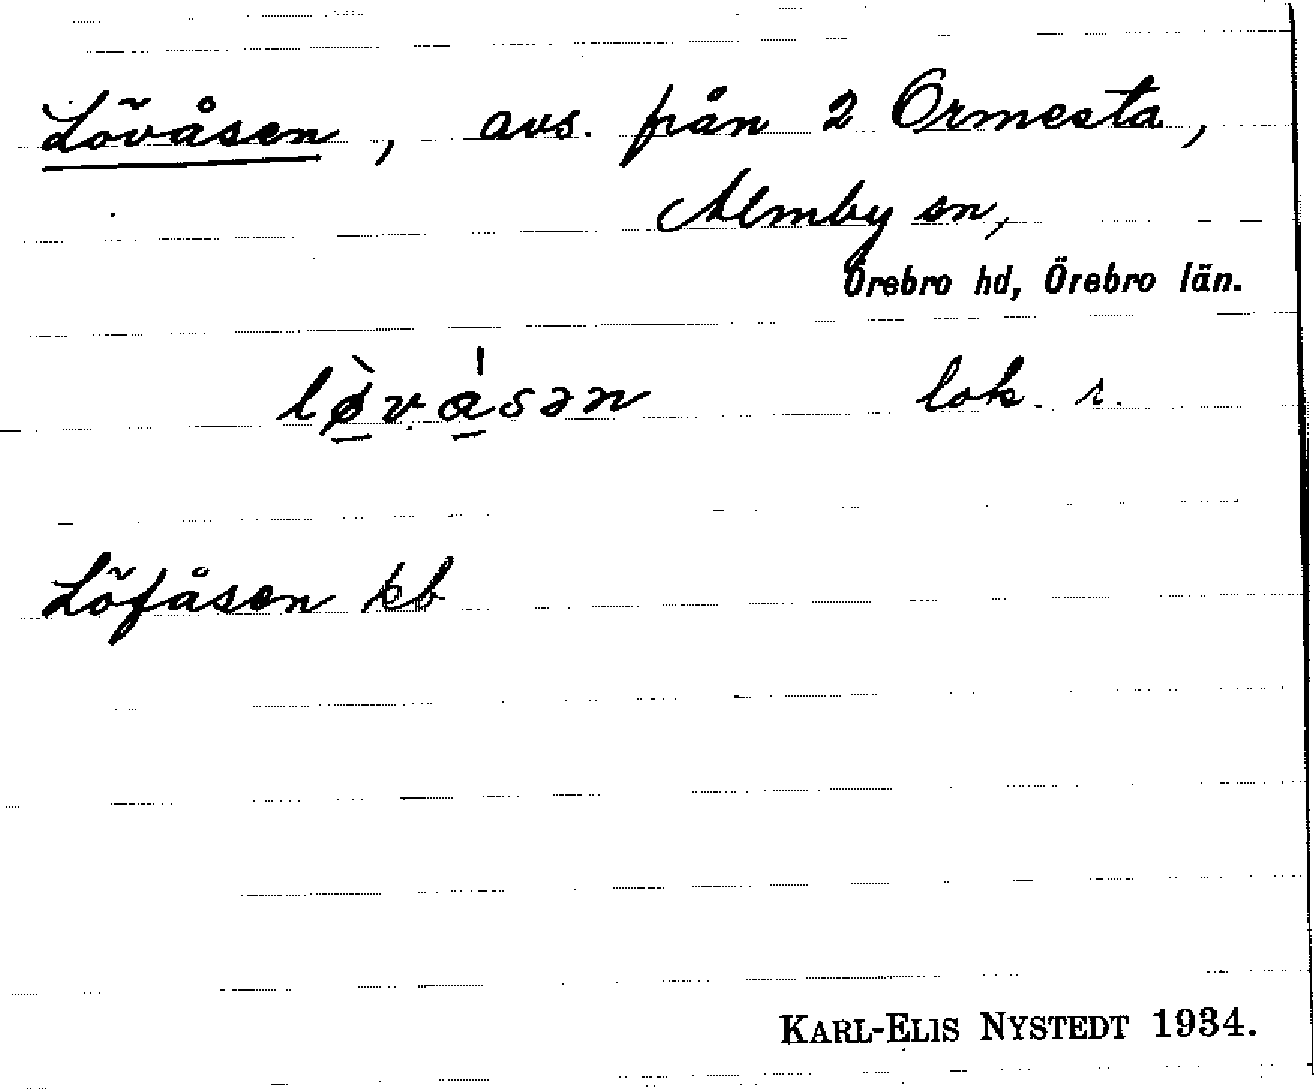 Lövåsen, avs. från 2 Ormesta,
Almby sn,
Örebro hd, Örebro län.
lø̱̀va̱̍sən lok. r.
Löfåsen kb
KARL-ELIS NYSTEDT 1934.